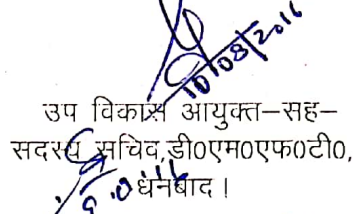 10/08/2016
उप विकास आयुक्त–सह–
सदस्य सचिव,डी0एम0एफ0टी0,
धनबाद।